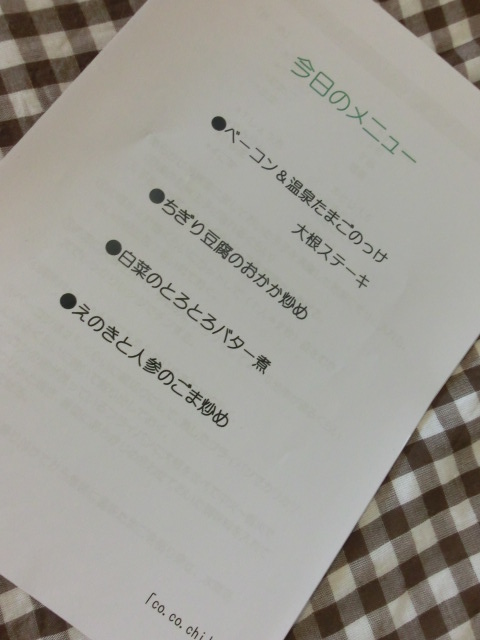 今日のメニュー
●ベーコン&温泉たまごのっけ
大根ステーキ
●ちぎり豆腐のおかか炒め
●白菜のとろとろバター煮
●えのきと人参のごま炒め
「co.co.chi